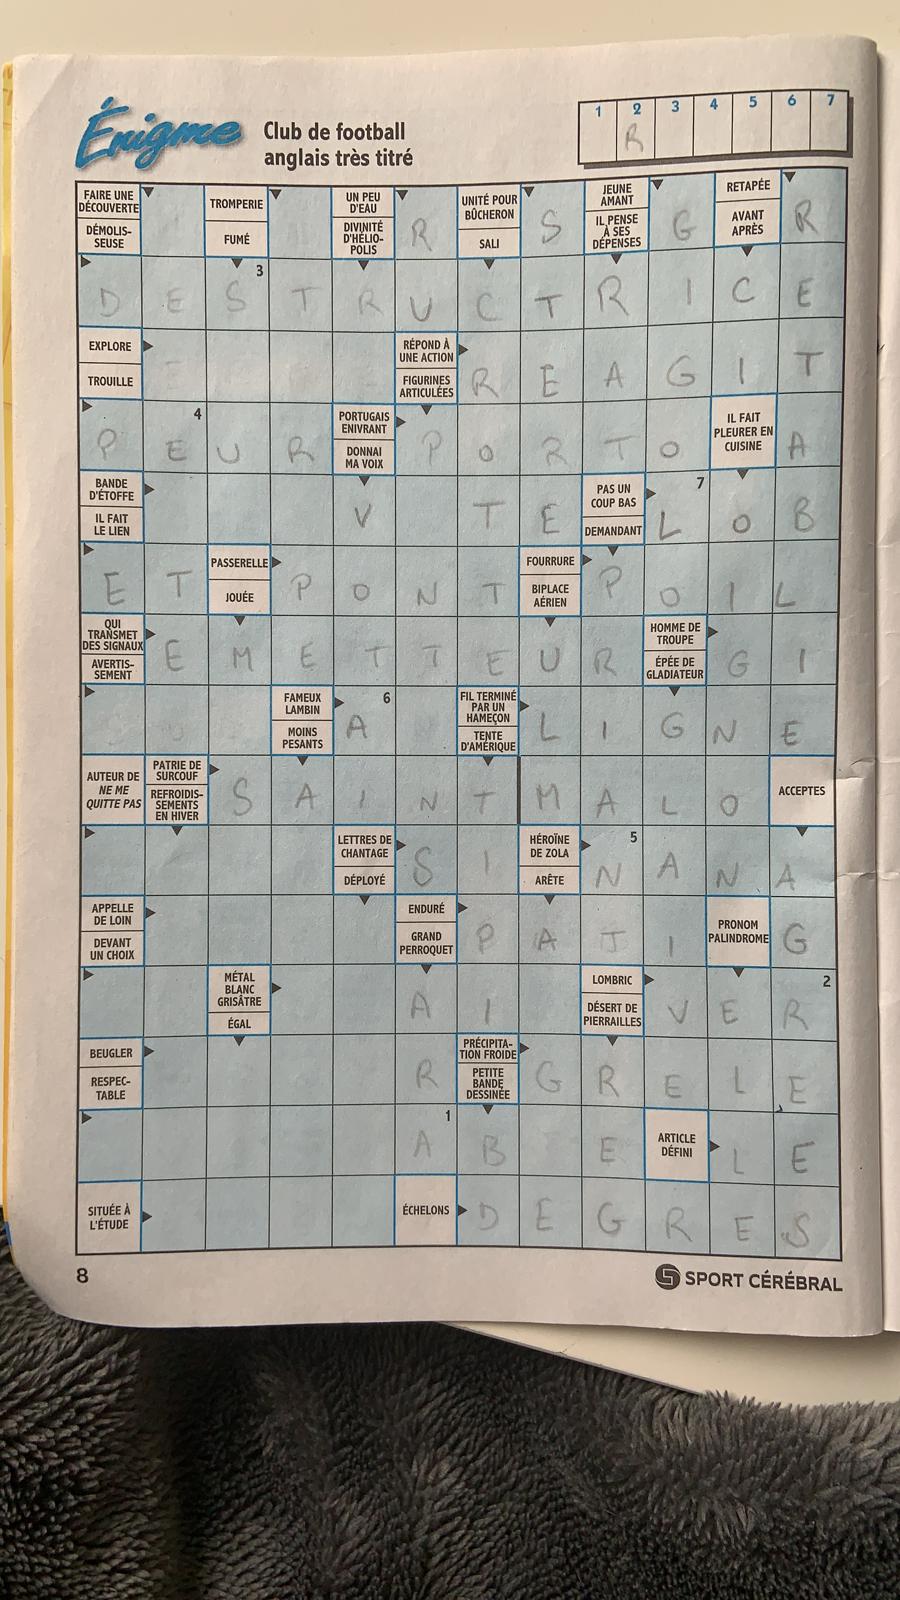 Énigme
Club de football
anglais très titré
1 2 3 4 5 6 7
R
FAIRE UNE
DÉCOUVERTE
DÉMOLIS-
SEUSE
TROMPERIE
FUMÉ
UN PEU
D'EAU
DIVINITÉ
D'HÉLIO-
POLIS
R
UNITÉ POUR
BÛCHERON
SALI
S
JEUNE
AMANT
IL PENSE
À SES
DÉPENSES
G
RETAPÉE
AVANT
APRÈS
R
3
D E S T R U C T R I C E
EXPLORE
TROUILLE
RÉPOND À
UNE ACTION
FIGURINES
ARTICULÉES
R E A G I T
4
P E U R
PORTUGAIS
ENIVRANT
DONNAI
MA VOIX
P O R T O
IL FAIT
PLEURER EN
CUISINE
A
BANDE
D'ÉTOFFE
IL FAIT
LE LIEN
V T E
PAS UN
COUP BAS
DEMANDANT
7
L O B
E T
PASSERELLE
JOUÉE
P O N T
FOURRURE
BIPLACE
AÉRIEN
P O I L
QUI
TRANSMET
DES SIGNAUX
AVERTIS-
SEMENT
E M E T T E U R
HOMME DE
TROUPE
ÉPÉE DE
GLADIATEUR
G I
FAMEUX
LAMBIN
MOINS
PESANTS
6
A
FIL TERMINÉ
PAR UN
HAMEÇON
TENTE
D'AMÉRIQUE
L I G N E
AUTEUR DE
NE ME
QUITTE PAS
PATRIE DE
SURCOUF
REFROIDIS-
SEMENTS
EN HIVER
S A I N T M A L O
ACCEPTES
LETTRES DE
CHANTAGE
DÉPLOYÉ
S I
HÉROÏNE
DE ZOLA
ARÊTE
5
N A N A
APPELLE
DE LOIN
DEVANT
UN CHOIX
ENDURÉ
GRAND
PERROQUET
P A T I
PRONOM
PALINDROME
G
MÉTAL
BLANC
GRISÂTRE
ÉGAL
A I
LOMBRIC
DÉSERT DE
PIERRAILLES
2
V E R
BEUGLER
RESPEC-
TABLE
R
PRÉCIPITA-
TION FROIDE
PETITE
BANDE
DESSINÉE
G R E L E
1
A B E
ARTICLE
DÉFINI
L E
SITUÉE À
L'ÉTUDE
ÉCHELONS
D E G R E S
8
SPORT CÉRÉBRAL